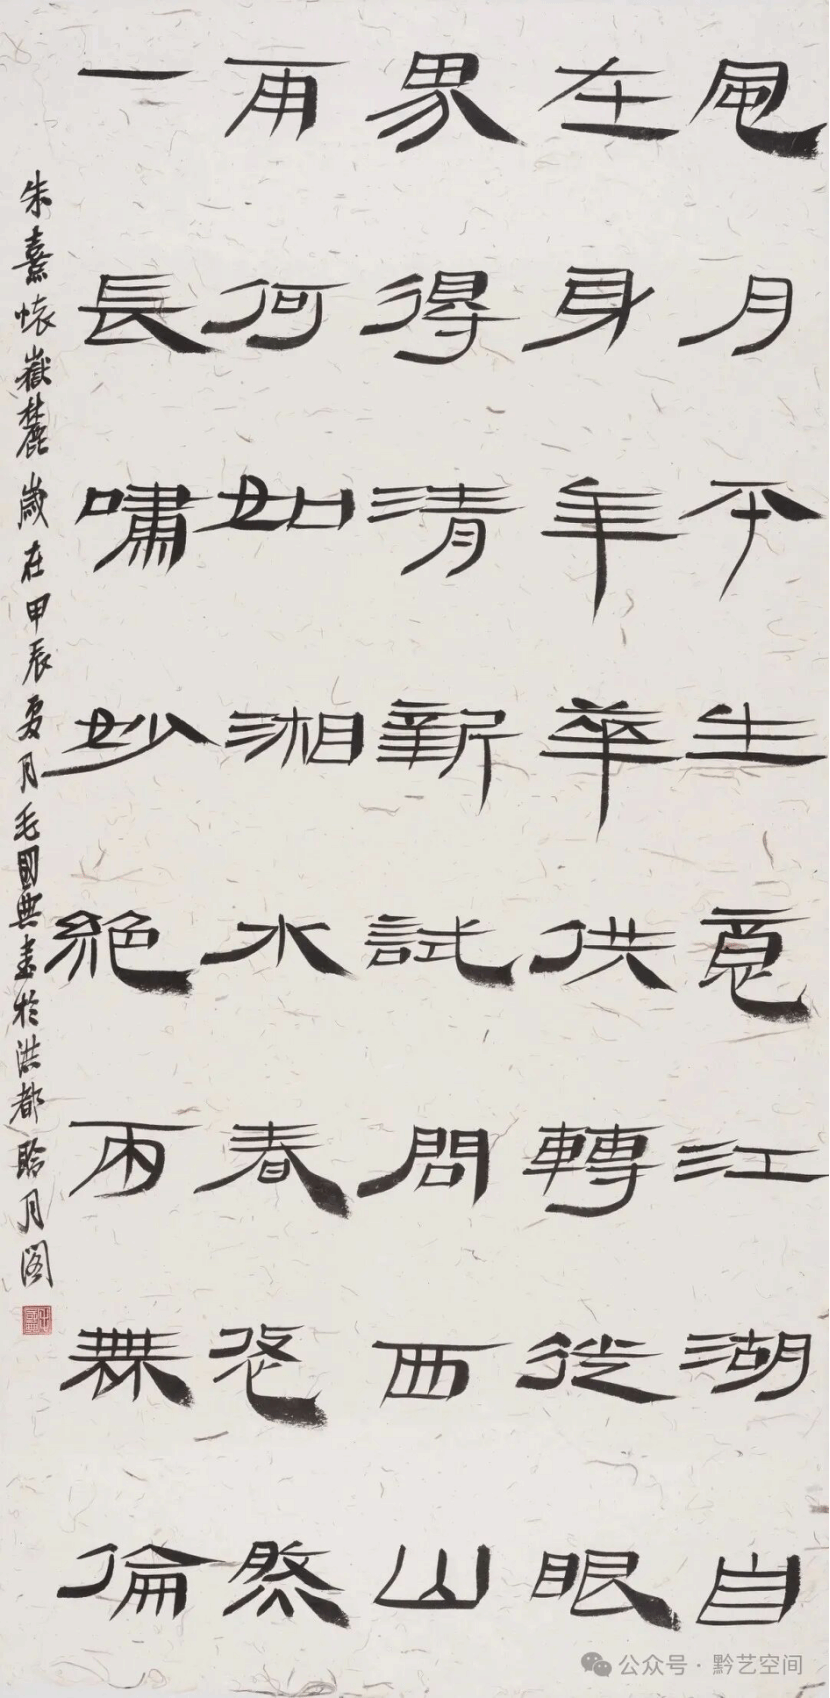 風月平生意江湖自
在身年華供轉徙眼
界得清新試問西山
雨何如湘水春悠然
一長嘯妙絕兩無倫
朱熹懷嶽麓歲在甲辰夏月毛國典書於洪都聆月閣
公众号 · 黔艺空间